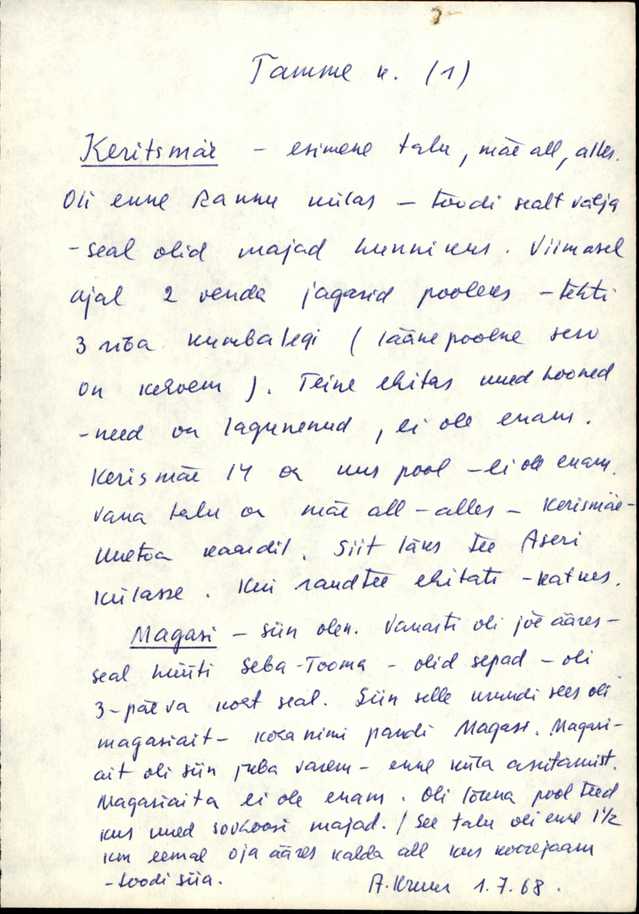 Tamme k. (1)
Keritsmäe – esimene talu, mäe all, alles.
Oli enne Rannu külas – toodi sealt välja
– seal olid majad hunnikus. Viimasel
ajal 2 venda jagasid pooleks – tehti
3 riba kumbalegi (läänepoolne serv
on kõrvem). Teine ehitas uued hooned
– need on lagunenud, ei ole enam.
Kerismäe 14 on uus pool – ei ole enam.
Vana talu on mäe all – alles – Kerismäe-
Uuetoa kaardil. Siit läks tee Aseri
külasse. Kui randtee ehitati – katkes.
Magasi – siin olen. Vanasti oli jõe ääres –
seal hüüti Seba-Tooma – olid sepad – oli
3-päeva koht seal. Siin selle krundi sees oli
magasiait – koha nimi pandi Magasi. Magasi-
ait oli siin juba varem – enne küla asutamist.
Magasiaita ei ole enam. Oli lõuna pool teed
kus uued sovhoosi majad. / See talu oli enne 1 1/2
km eemal oja ääres kalda all kus koorejaam
– toodi siia.
A. Kruus 1.7.68.